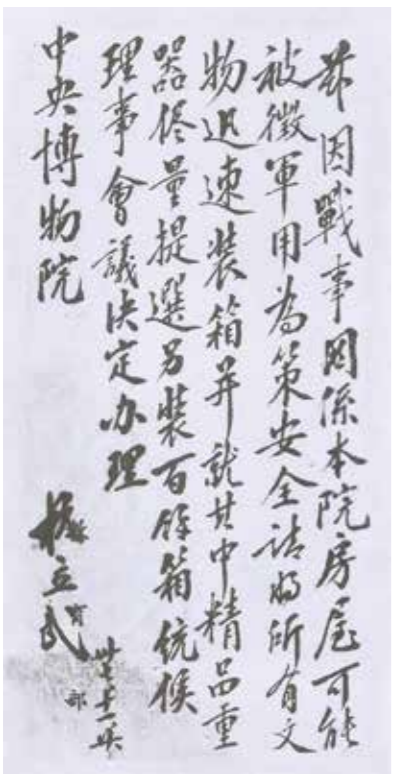 茲因戰事關係本院房屋可能
被徵軍用為策安全請將所有文
物迅速裝箱并就其中精品重
器儘量提選另裝百餘箱統候
理事會議決定办理
中央博物院
杭立武